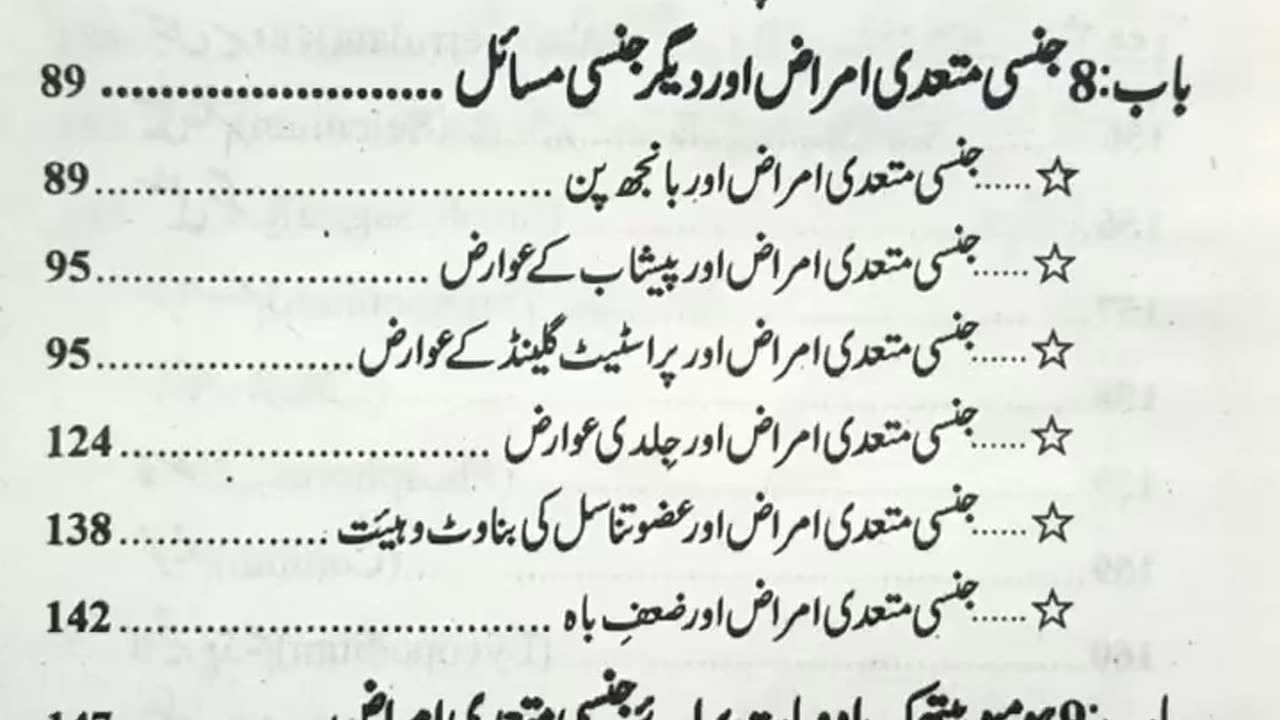 باب:8 جنسی متعدی امراض اور دیگر جنسی مسائل ...................... 89
☆......جنسی متعدی امراض اور بانجھ پن ................................ 89
☆......جنسی متعدی امراض اور پیشاب کے عوارض ....................... 95
☆......جنسی متعدی امراض اور پراسٹیٹ گلینڈ کے عوارض .................. 95
☆......جنسی متعدی امراض اور جِلدی عوارض .......................... 124
☆......جنسی متعدی امراض اور عضو تناسل کی بناوٹ و ہیئت ............... 138
☆......جنسی متعدی امراض اور ضعفِ باہ .............................. 142
باب:9 ہومیوپیتھک ادویات برائے جنسی متعدی امراض 147